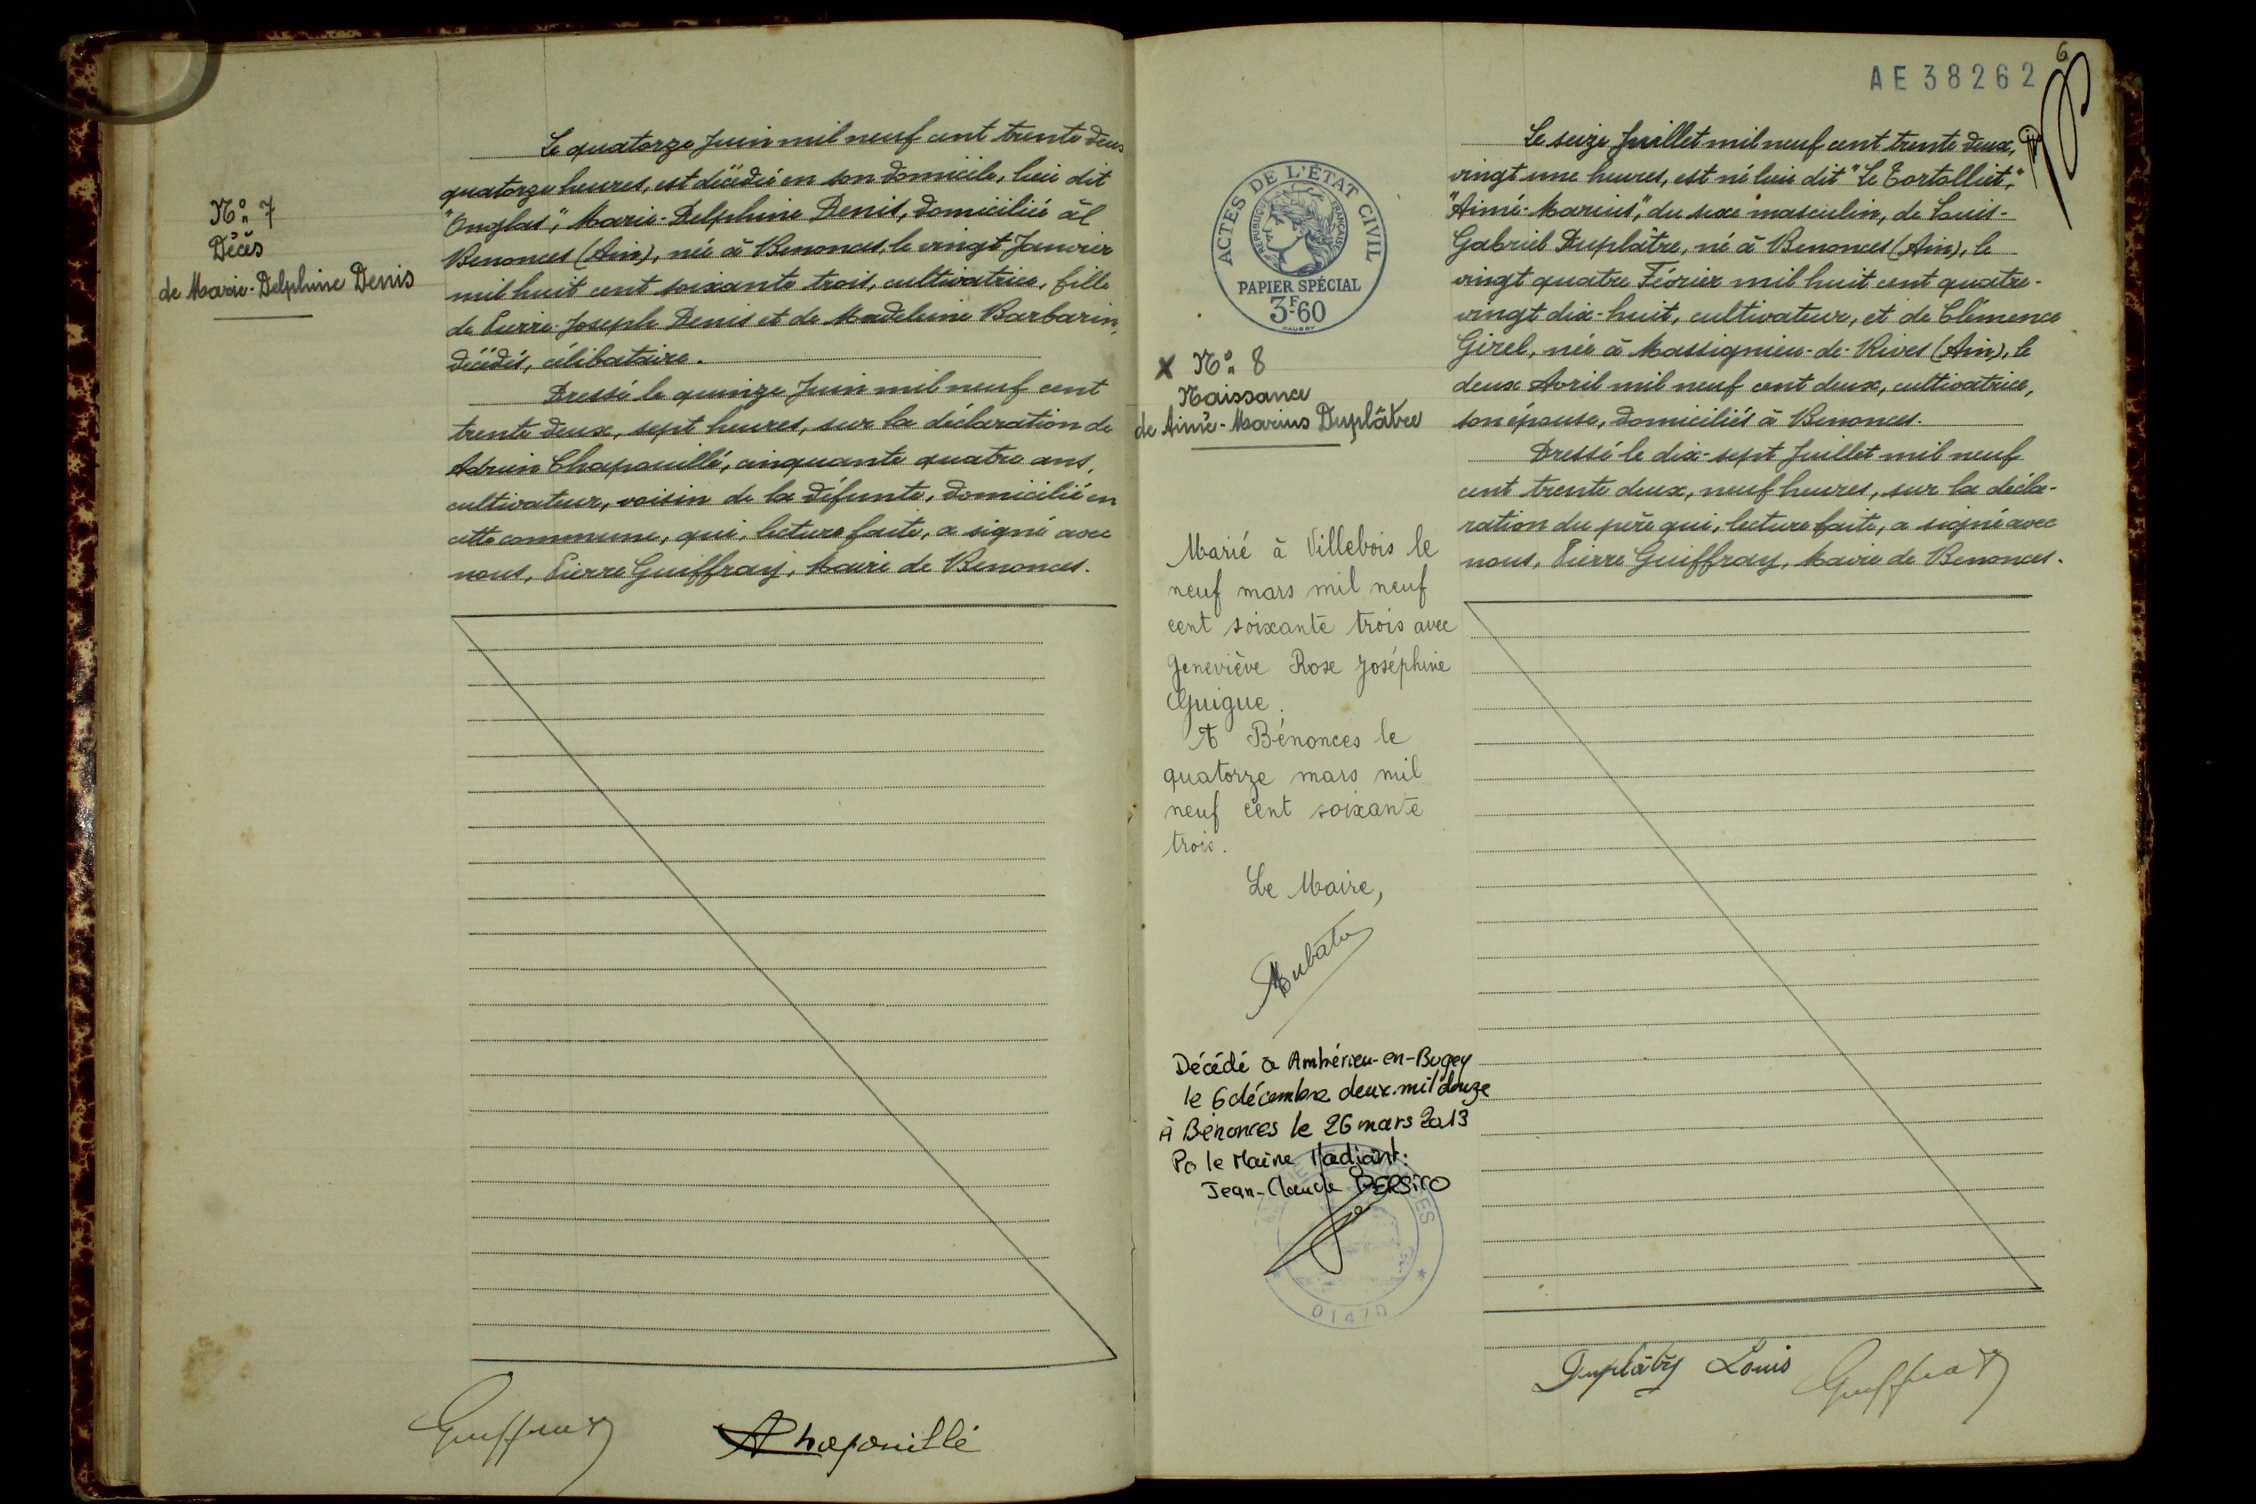 N° 7
Décès
de Marie-Delphine Denis
Le quatorze Juin mil neuf cent trente deux
quatorze heures, est décédée en son domicile, lieu dit
"Onglas", Marie-Delphine Denis, domiciliée à
Benonces (Ain), née à Benonces, le vingt Janvier
mil huit cent soixante trois, cultivatrice, fille
de Pierre-Joseph Denis et de Madeleine Barbarin,
décédés, célibataire.
Dressé le quinze Juin mil neuf cent
trente deux, sept heures, sur la déclaration de
Adrien Chapouillé, cinquante quatre ans,
cultivateur, voisin de la défunte, domicilié en
cette commune, qui, lecture faite, a signé avec
nous, Pierre Guiffray, Maire de Benonces.
Guiffray
Chapouillé
6
AE 38262
ACTES DE L'ÉTAT CIVIL
RÉPUBLIQUE FRANÇAISE
PAPIER SPÉCIAL
3F60
X N° 8
Naissance
de Aimé-Marius Duplâtre
Le seize Juillet mil neuf cent trente deux,
vingt une heures, est né lieu dit "Le Tortolliet",
"Aimé-Marius", du sexe masculin, de Louis-
Gabriel Duplâtre, né à Benonces (Ain), le
vingt quatre Février mil huit cent quatre-
vingt dix-huit, cultivateur, et de Clémence
Girel, née à Massignieu-de-Rives (Ain), le
deux Avril mil neuf cent deux, cultivatrice,
son épouse, domiciliés à Benonces.
Dressé le dix-sept Juillet mil neuf
cent trente deux, neuf heures, sur la décla-
ration du père qui, lecture faite, a signé avec
nous, Pierre Guiffray, Maire de Benonces.
Marié à Villebois le
neuf mars mil neuf
cent soixante trois avec
Geneviève Rose Joséphine
Guigue.
A Bénonces le
quatorze mars mil
neuf cent soixante
trois.
Le Maire,
Décédé à Ambérieu-en-Bugey
le 6 décembre deux.mil douze
À Bénonces le 26 mars 2013
Po le Maire l'adjoint:
Jean-Claude PERSICO
01470
Duplâtre Louis
Guiffray